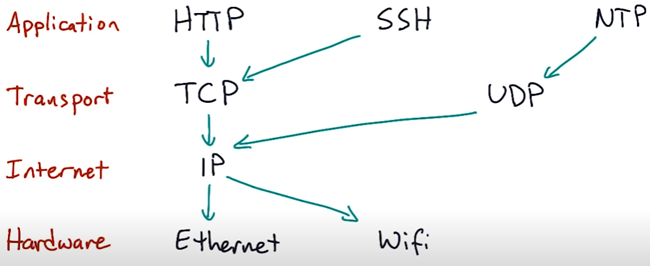 Application HTTP SSH NTP
Transport TCP UDP
Internet IP
Hardware Ethernet Wifi